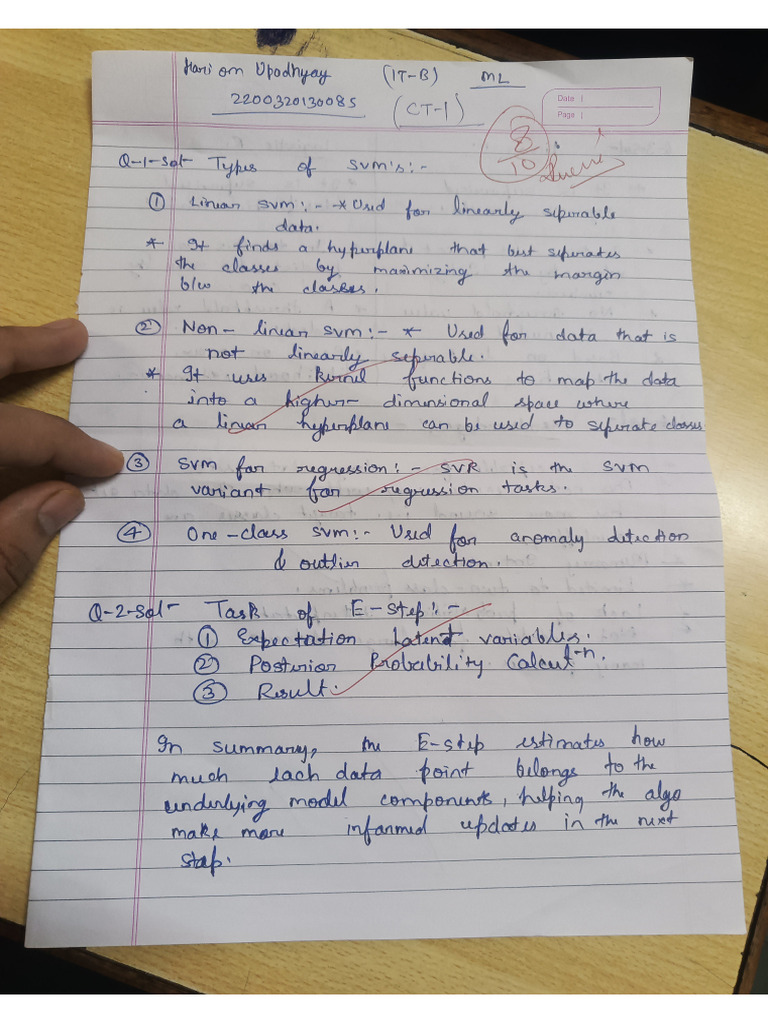 Hari om Upadhyay (IT-B) ML
2200320130085 (CT-1)
Date
Page
8/10
Q-1-Sol- Types of SVM's:-
① Linear SVM:- * Used for linearly seperable
data.
* It finds a hyperplane that best seperates
the classes by maximizing the margin
b/w the classes.
② Non-linear SVM:- * Used for data that is
not linearly seperable.
* It uses kernel functions to map the data
into a higher-dimensional space where
a linear hyperplane can be used to seperate classes
③ SVM for regression:- SVR is the SVM
variant for regression tasks.
④ One-class SVM:- Used for anomaly detection
& outlier detection.
Q-2-Sol- Task of E-Step:-
① Expectation Latent variables.
② Posterior Probability Calcut-n.
③ Result.
In summary, the E-step estimates how
much each data point belongs to the
underlying model components, helping the algo
make more informed updates in the next
step.